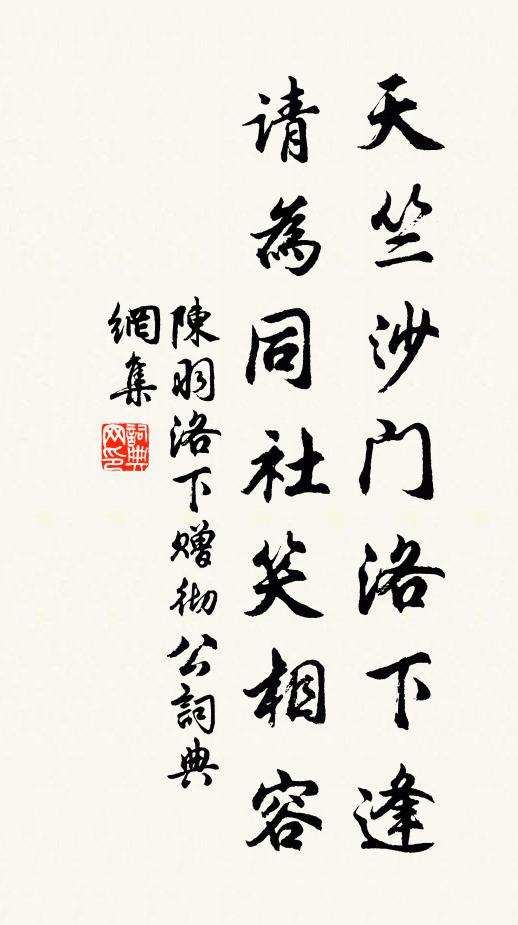 天竺沙门洛下逢
请為同社笑相容
陳羽洛下赠彻公詞典
網集
詞典网印